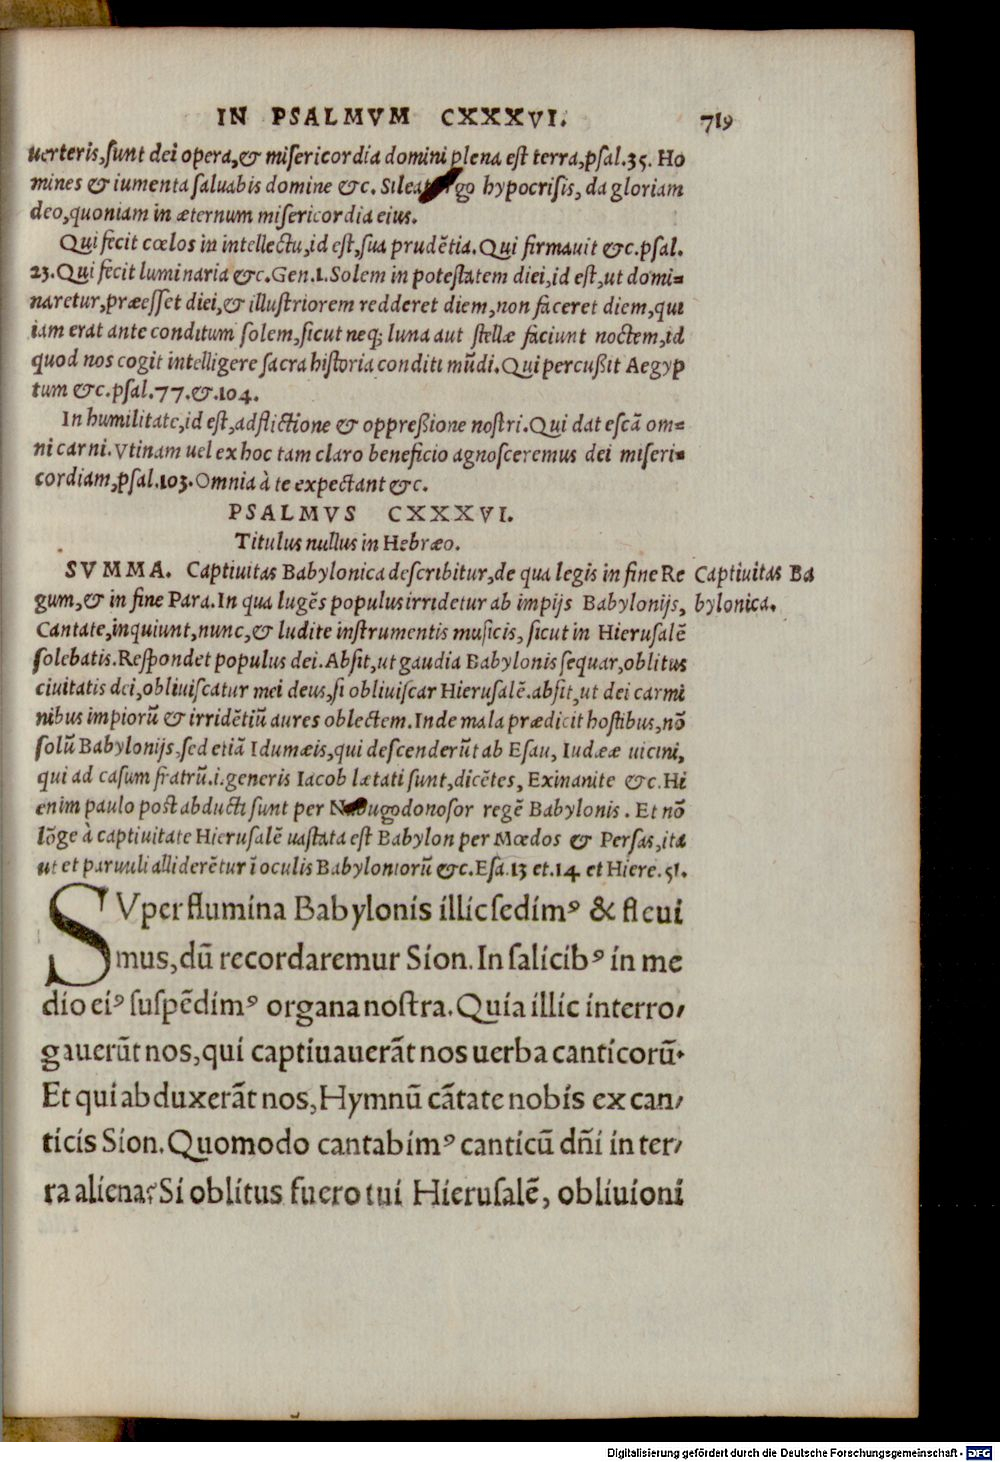 IN PSALMVM CXXXVI. 719
uerteris, sunt dei opera, & misericordia domini plena est terra, psal.35. Ho
mines & iumenta saluabis domine &c. Sileat ergo hypocrisis, da gloriam
deo, quoniam in æternum misericordia eius.
Qui fecit cœlos in intellectu, id est, sua prudẽtia. Qui firmauit &c.psal.
23. Qui fecit luminaria &c. Gen.1. Solem in potestatem diei, id est, ut domi-
naretur, præesset diei, & illustriorem redderet diem, non faceret diem, qui
iam erat ante conditum solem, sicut neq; luna aut stellæ faciunt noctem, id
quod nos cogit intelligere sacra historia conditi mũdi. Qui percußit Aegyp
tum &c.psal.77.&.104.
In humilitate, id est, adflictione & oppreßione nostri. Qui dat escã om-
ni carni. Vtinam uel ex hoc tam claro beneficio agnosceremus dei miseri-
cordiam, psal.103. Omnia à te expectant &c.
PSALMVS CXXXVI.
Titulus nullus in Hebræo.
SVMMA. Captiuitas Babylonica describitur, de qua legis in fine Re
gum, & in fine Para. In qua lugẽs populus irridetur ab impijs Babylonijs,
Captiuitas Ba
bylonica.
Cantate, inquiunt, nunc, & ludite instrumentis musicis, sicut in Hierusalẽ
solebatis. Respondet populus dei. Absit, ut gaudia Babylonis sequar, oblitus
ciuitatis dei, obliuiscatur mei deus, si obliuiscar Hierusalẽ. absit, ut dei carmi
nibus impiorũ & irridẽtiũ aures oblectem. Inde mala prædicit hostibus, nõ
solũ Babylonijs, sed etiã Idumæis, qui descenderũt ab Esau, Iudææ uicini,
qui ad casum fratrũ.i.generis Iacob lætati sunt, dicẽtes, Exinanite &c. Hi
enim paulo post abducti sunt per Nabugodonosor regẽ Babylonis. Et nõ
lõge à captiuitate Hierusalẽ uastata est Babylon per Mœdos & Persas, ita
ut et paruuli alliderẽtur ĩ oculis Babyloniorũ &c. Esa.13 et.14 et Hiere.51.
SVper flumina Babylonis illic sedimꝰ & fleui
mus, dũ recordaremur Sion. In salicibꝰ in me
dio eiꝰ suspẽdimꝰ organa nostra. Quia illic interro-
gauerũt nos, qui captiuauerãt nos uerba canticorũ.
Et qui abduxerãt nos, Hymnũ cãtate nobis ex can-
ticis Sion. Quomodo cantabimꝰ canticũ dñi in ter-
ra aliena? Si oblitus fuero tui Hierusalẽ, obliuioni
Digitalisierung gefördert durch die Deutsche Forschungsgemeinschaft - DFG